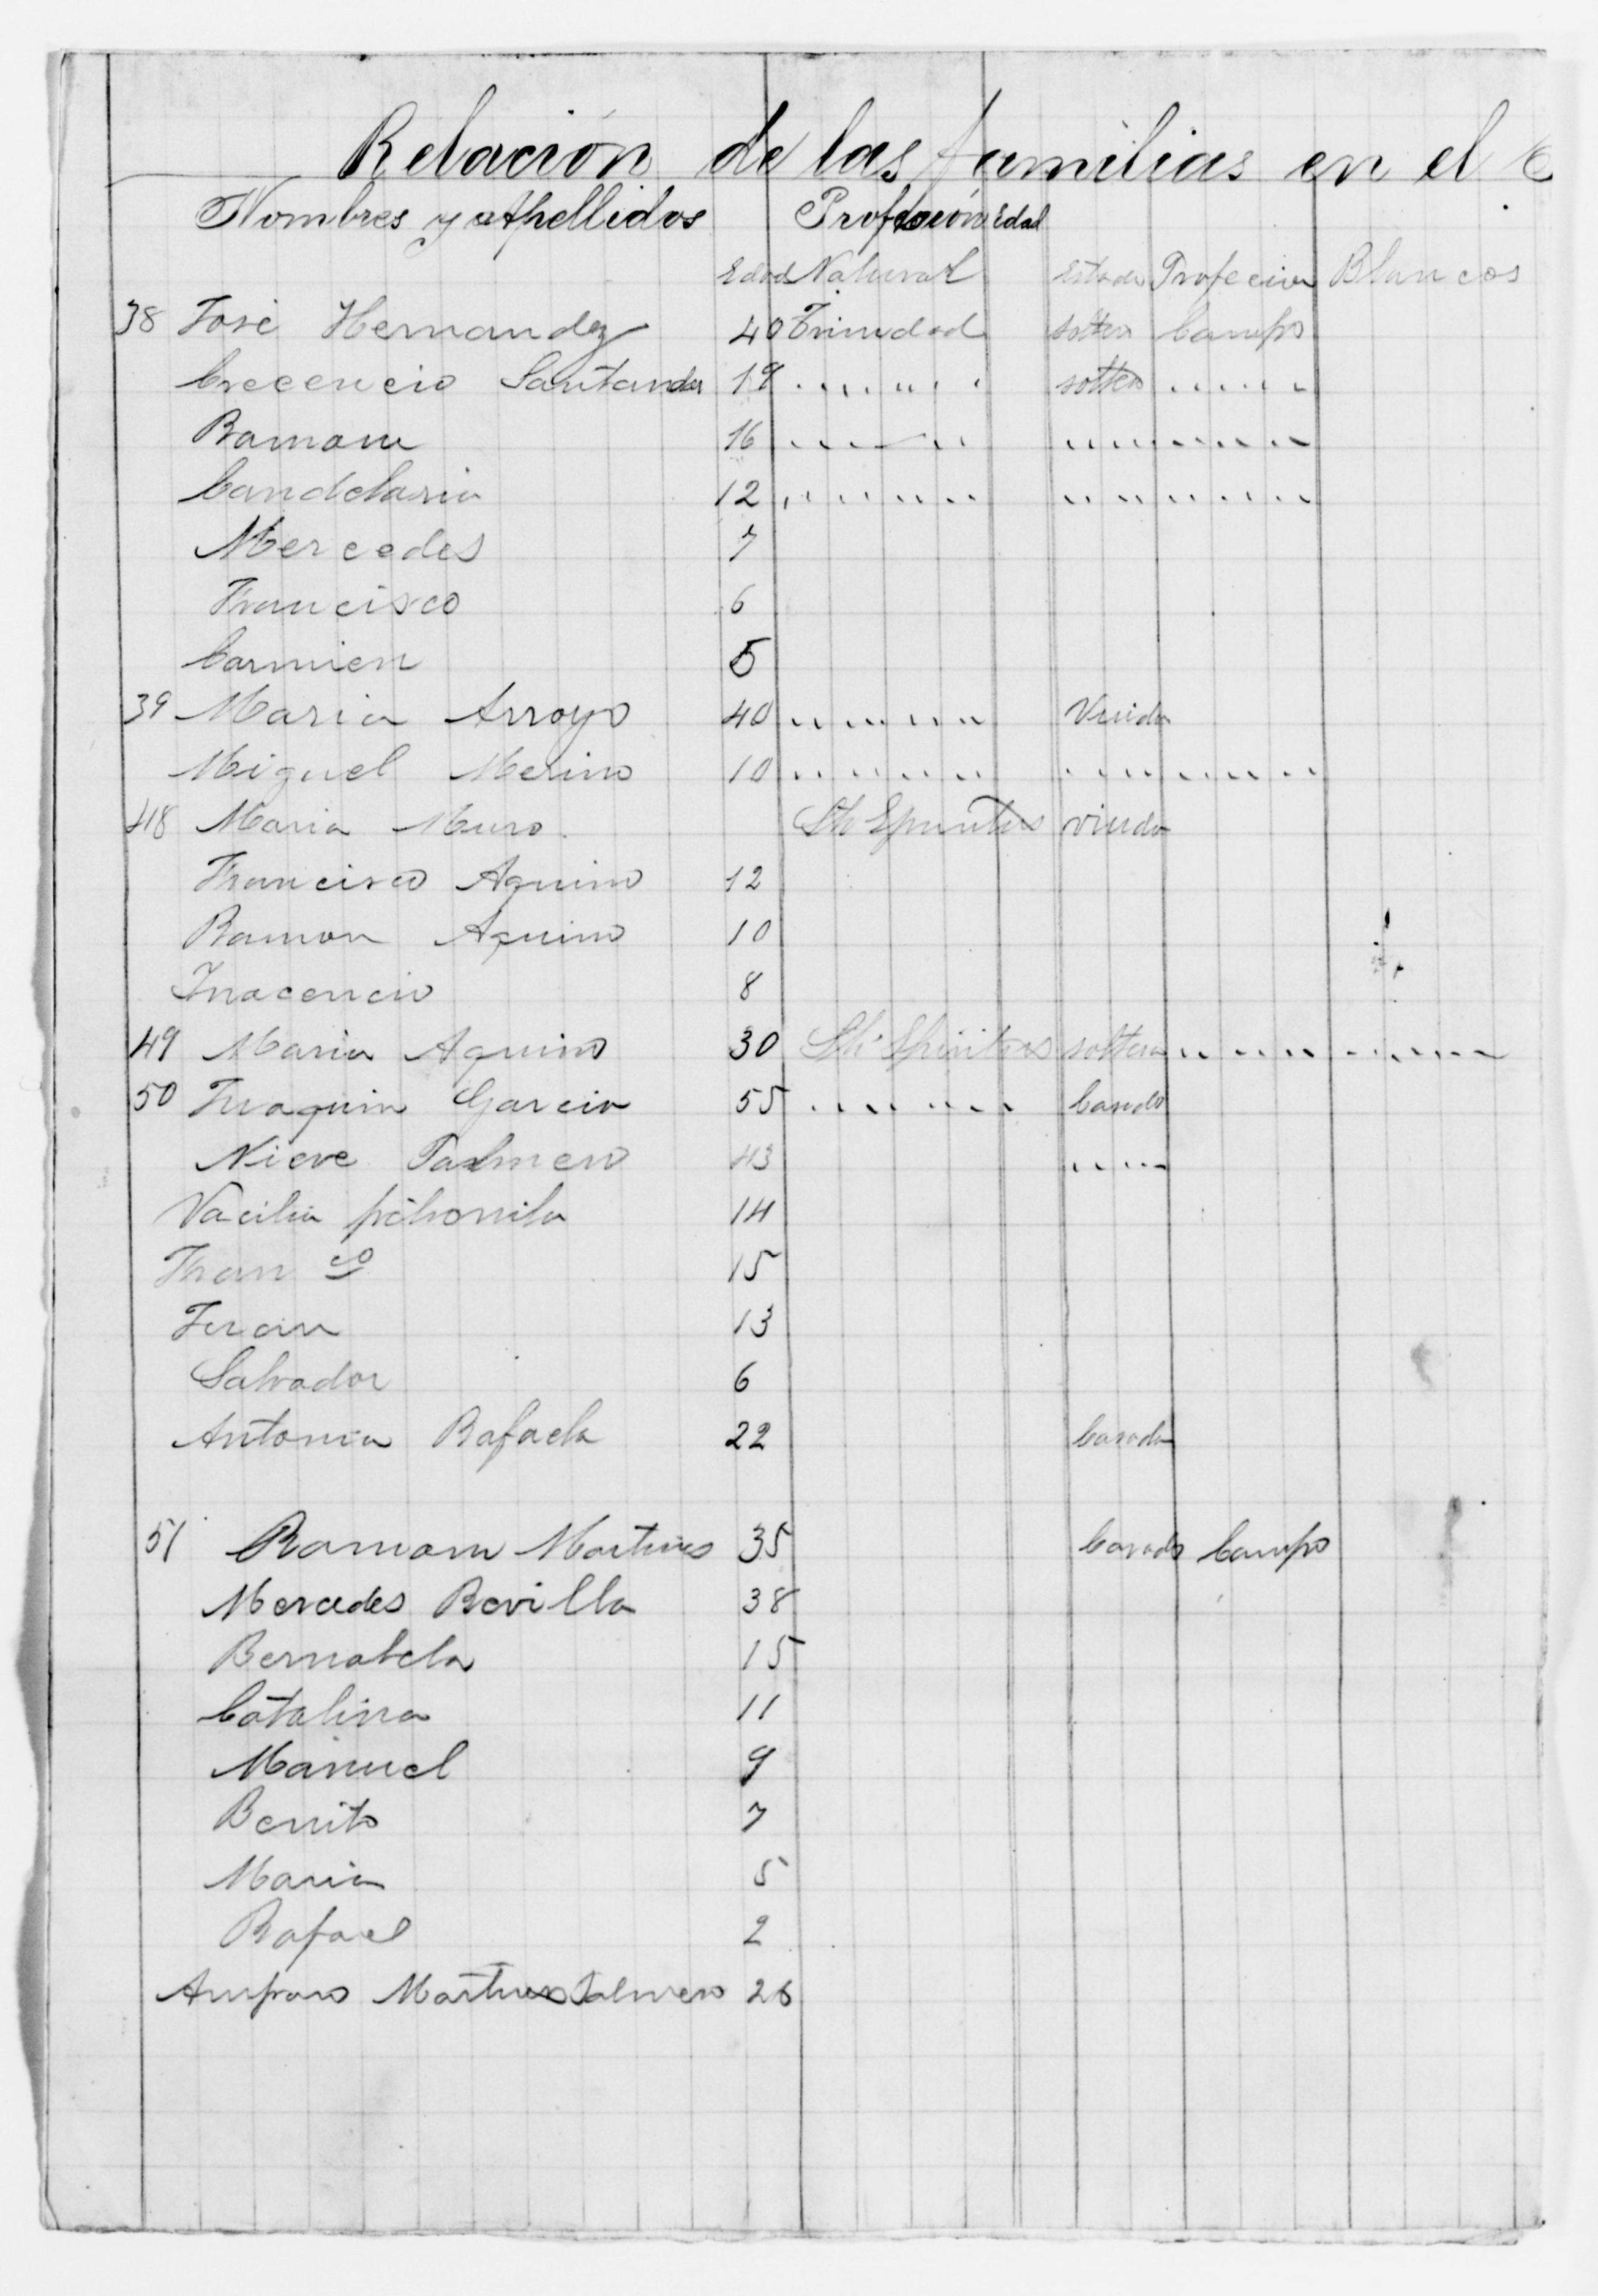 Relación de las familias en el
Nombres y Apellidos Profesión Edad
Edad Natural Estado Profecion Blancos
38 José Hernandez 40 Trinidad soltero Campo
Crecencio Santander 19 soltero
Ramona 16
Candelaria 12
Mercedes 7
Francisco 6
Carmien 5
39 Maria Arroyo 40 Viuda
Miguel Merino 10
48 Maria Muro Sti Spiritus viuda
Francisco Aquino 12
Ramon Aquino 10
Inacencio 8
49 Maria Aquino 30 Sti Spiritus soltera
50 Juaquin Garcia 55 Casado
Nieve Palmero 43
Vacilia 14
Fran co 15
Juan 13
Salvador 6
Antonia Rafaela 22 Casada
51 Ramon Martines 35 Casado Campo
Mercedes Revilla 38
Bernabela 15
Catalina 11
Manuel 9
Benito 7
Maria 5
Rafael 2
Amparo Martines Palmero 26